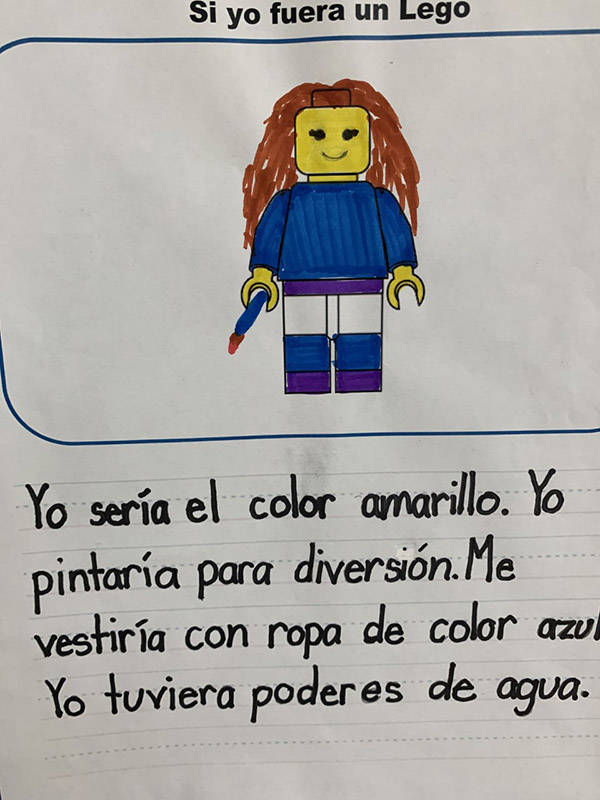 Si yo fuera un Lego
Yo sería el color amarillo. Yo
pintaría para diversión. Me
vestiría con ropa de color azul
Yo tuviera poderes de agua.